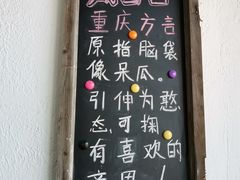 重庆方言
原指脑袋
像呆瓜。
引伸为憨
态可掬
有喜欢的
意思!